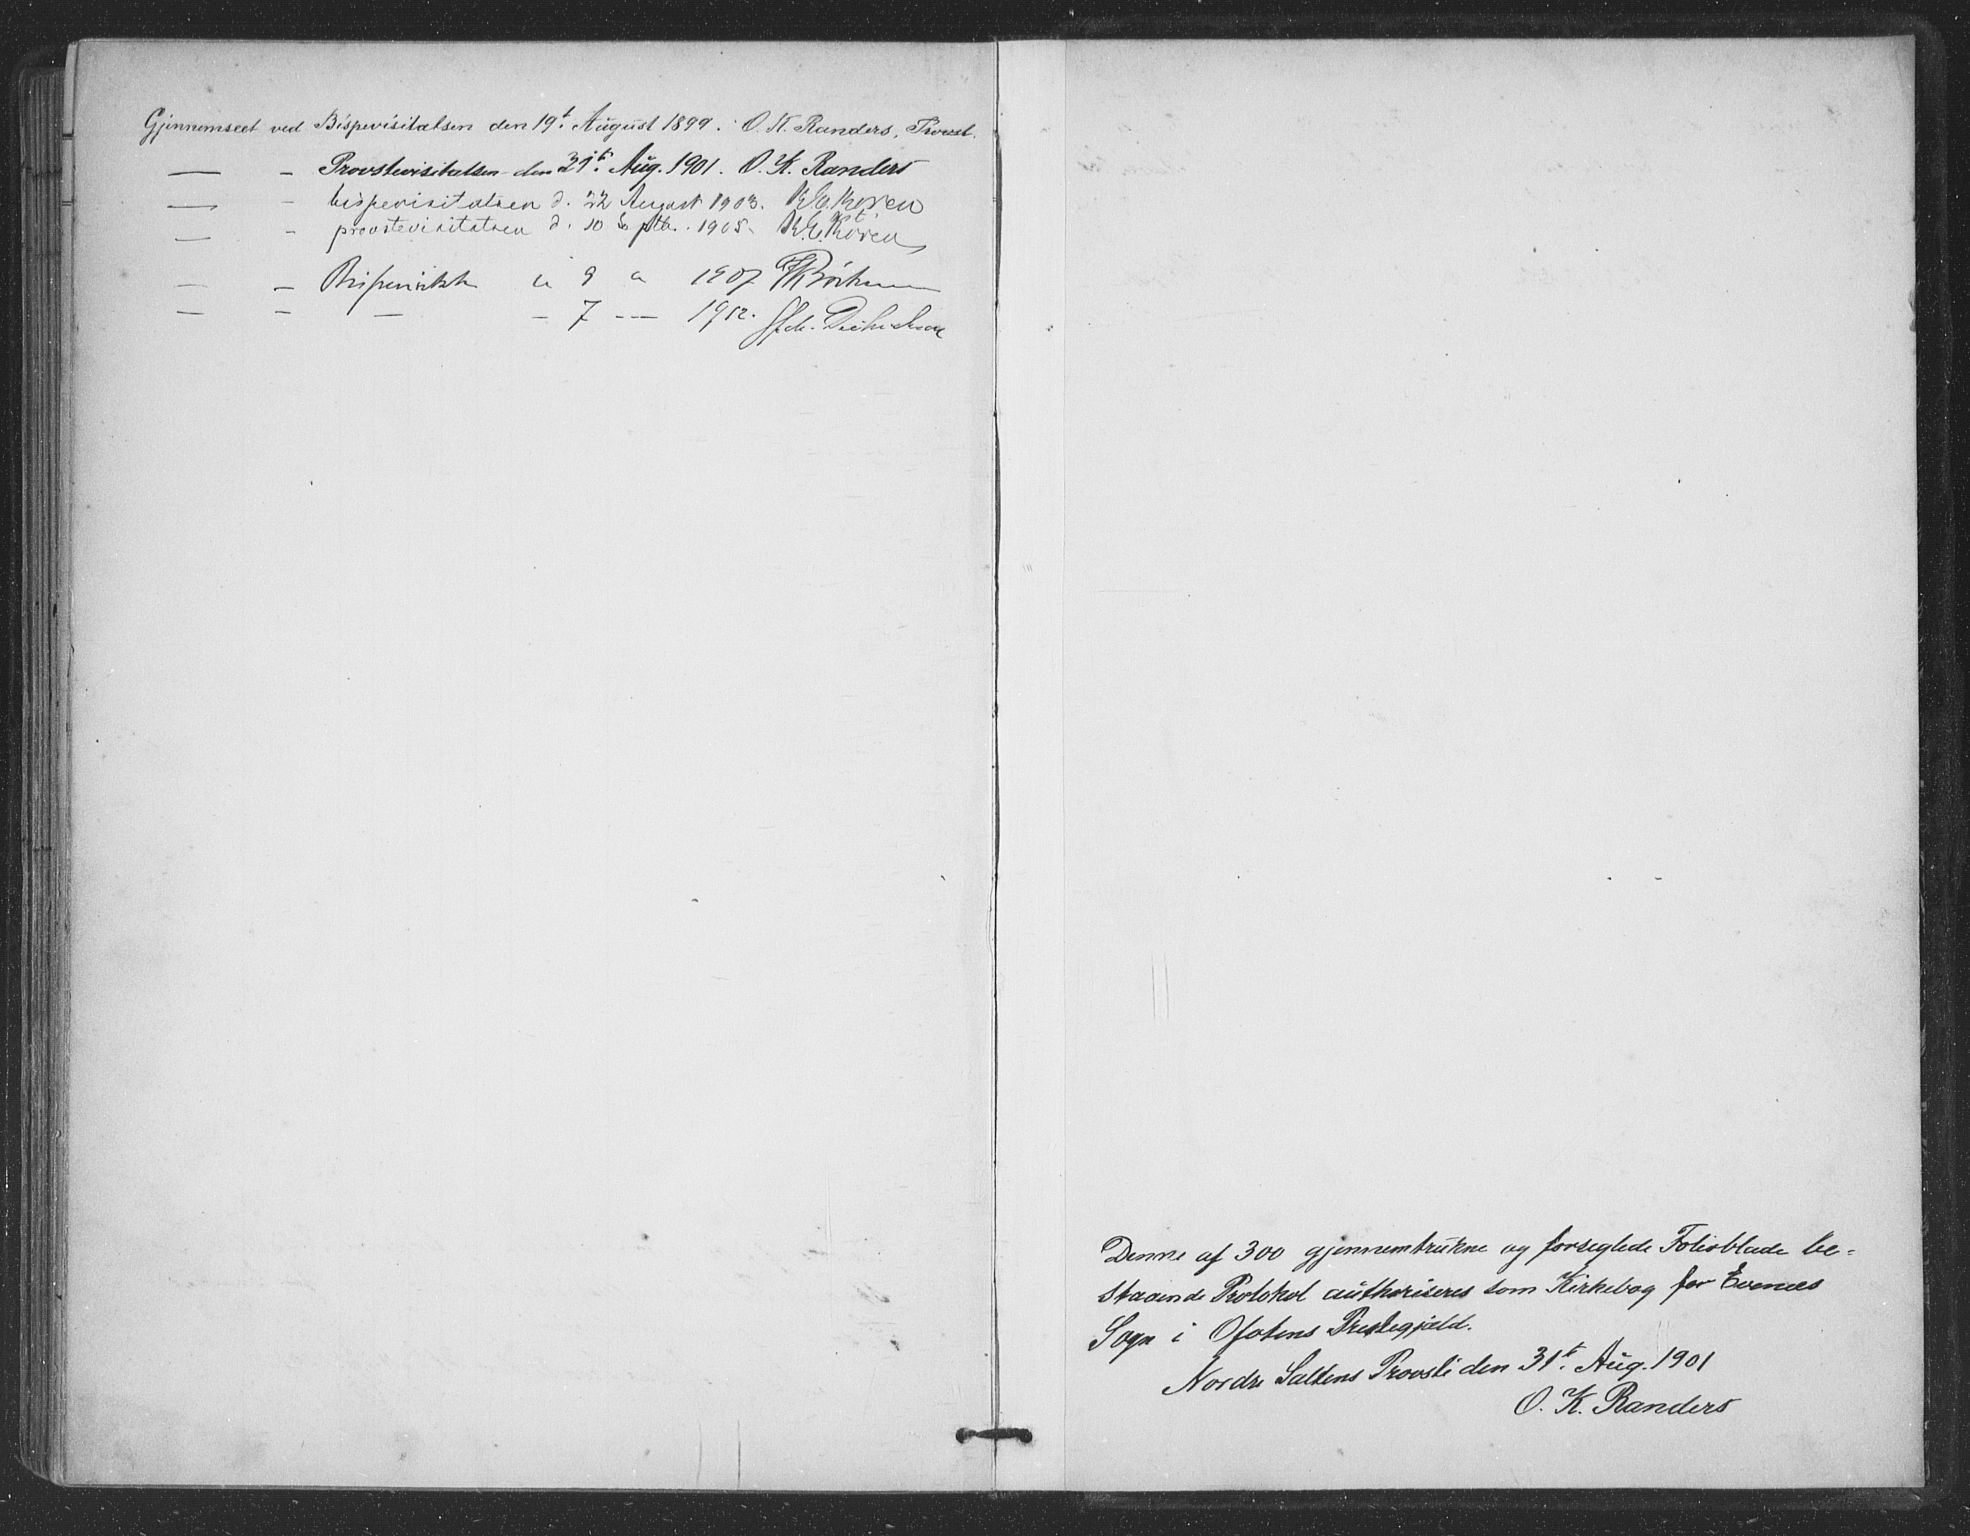 Gjennemseet ved Bispevisitatsen den 19t August 1899. O. K. Randers, Provst.
— - Provstevisitatsen den 31t Aug. 1901. O. K. Randers
— - bispevisitatsen d. 22 August 1903. K. E. Koren
— - provstevisitatsen d. 10 Septbr. 1905. K. E. Koren
— - 9 1907
— - — - 7 — 1912.
Denne af 300 gjennemtrukne og forseglede Folioblade be-
staaende Protokol authoriseres som Kirkebog for Evenes
Sogn i Ofotens Prestegjæld.
Nordre Saltens Provsti den 31t Aug. 1901
O. K. Randers